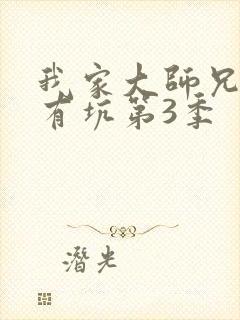 我家大師兄
有坑第3季
潛光